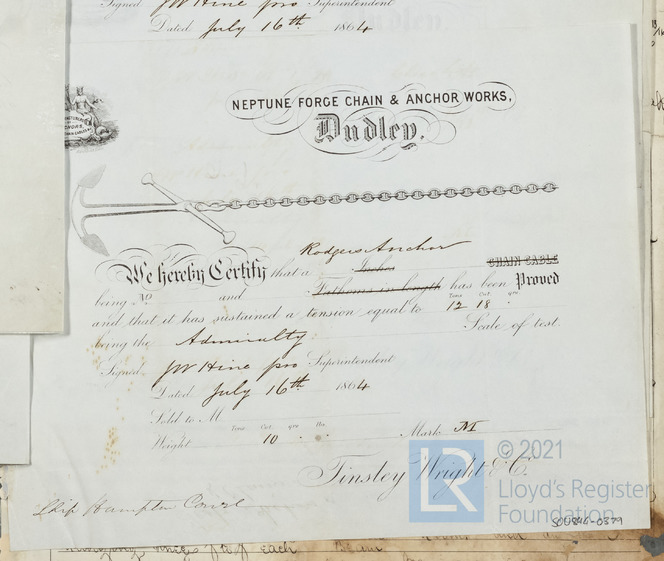 Signed JW Hine pro Superintendent
Dated July 16th 1864
NEPTUNE FORGE CHAIN & ANCHOR WORKS,
Dudley.
Rodgers Anchor
We hereby Certify that a Inches CHAIN CABLE
being No and Fathoms in length has been Proved
Tons Cwt. qrs
and that it has sustained a tension equal to 12 18 .
being the Admiralty Scale of test.
Signed JW Hine pro Superintendent
Dated July 16th 1864
Sold to M
Tons Cwt. qrs lbs
Weight 10 . . Mark M
Tinsley Wright & Co.
Ship Hampton Court
LR
© 2021
Lloyd's Register
Foundation
SOU846-0379
each